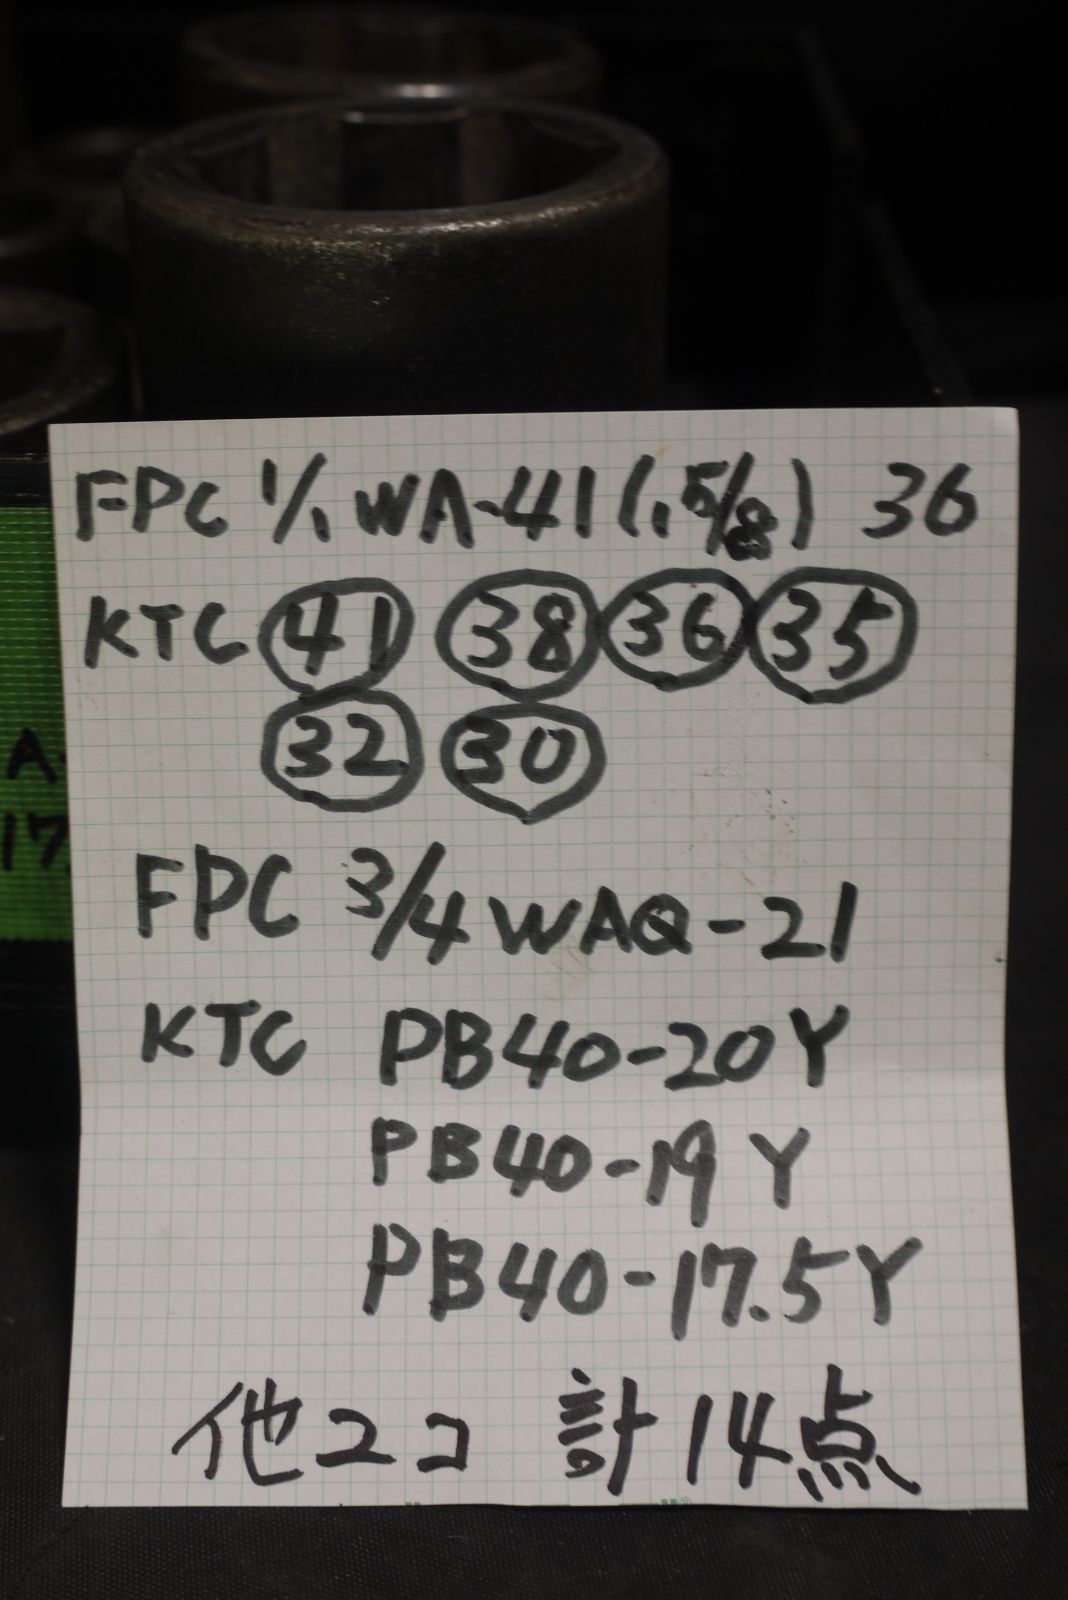 FPC 1/1 WA-41(1.5/8) 36
KTC 41 38 36 35
32 30
FPC 3/4 WAQ-21
KTC PB40-20Y
PB40-19Y
PB40-17.5Y
他2コ 計14点
A-
17.